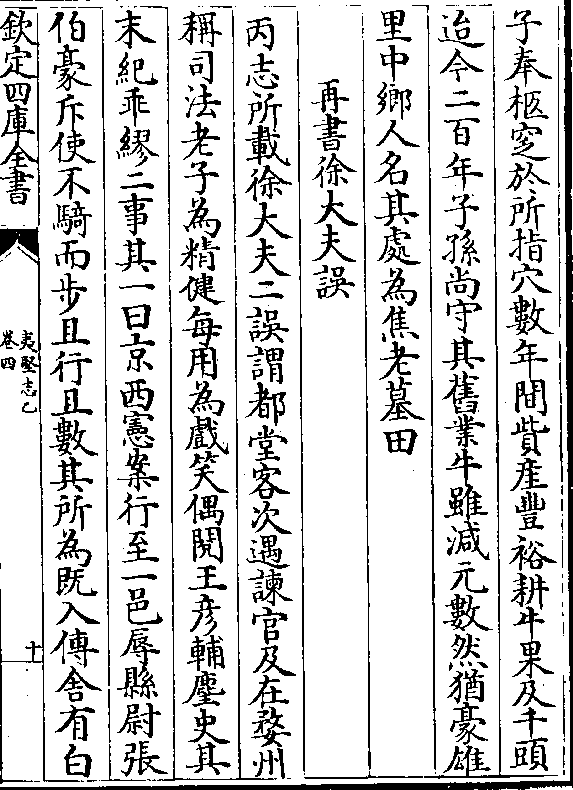 子奉柩窆於所指穴數年間貲產豐裕耕牛果及千頭
迨今二百年子孫尚守其舊業牛雖減元數然猶豪雄
里中鄉人名其處為焦老墓田
再書徐大夫誤
丙志所載徐大夫二誤謂都堂客次遇諫官及在婺州
稱司法老子為精健每用為戲笑偶閱王彥輔麈史其
末紀乖繆二事其一曰京西憲案行至一邑辱縣尉張
伯豪斥使不騎而步且行且數其所為既入傳舍有白
欽定四庫全書
夷堅志乙
卷四
十